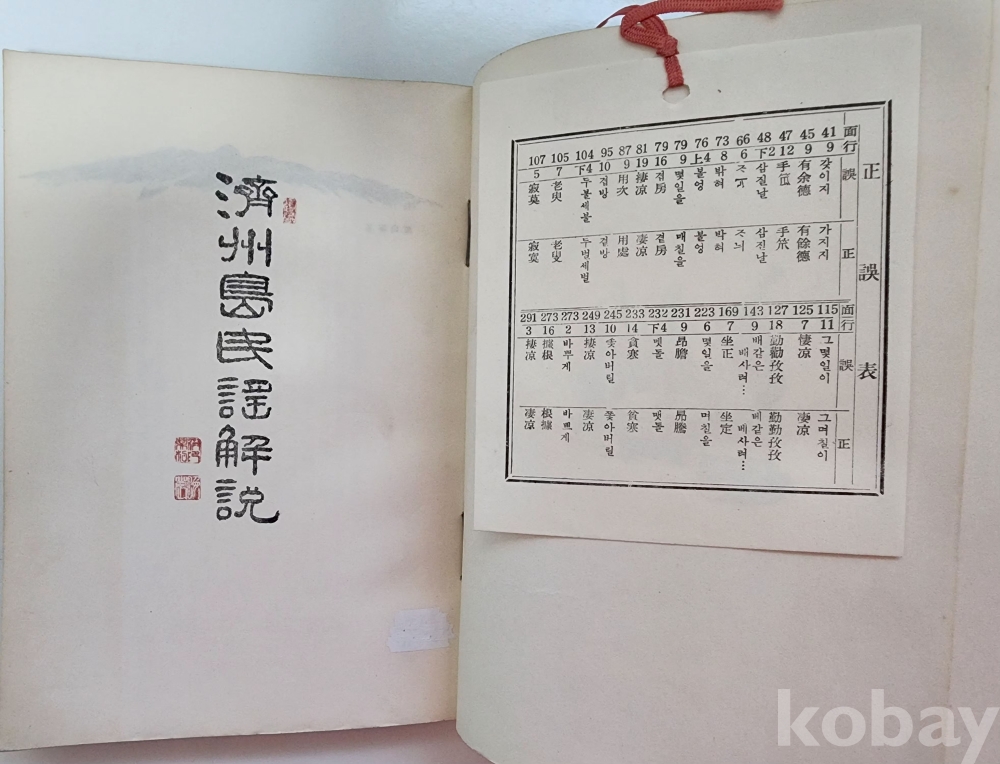 濟州島民謠解説
正誤表
面 行 誤 正
41 9 갖이지 가지지
45 9 有余德 有餘德
47 12 手 手
48 下2 삼질날 삼짇날
66 6
73 8 박혀 박혀
76 上4 불엉 불영
79 9 몇일을 매칠을
79 16 겯房 곁房
81 19 棲凉 凄凉
87 9 用次 用處
95 10 겯방 곁방
104 下4 두불세불 두벌세벌
105 7 老臾 老叟
107 5 寂莫 寂寞
面 行 誤 正
115 11 그몇일이 그며칠이
125 7 悽凉 凄凉
127 18 勤勸孜孜 勤勤孜孜
143 9 배같은 배사려… 베같은 베사려…
169 7 坐正 坐定
223 6 몇일을 며칠을
231 9 昂膽 昂騰
232 下4 맷돌
233 14 貪寒 貧寒
245 10 좇아버릴 쫓아버릴
249 13 棲凉 凄凉
273 2 바뿌게 바쁘게
273 16 據根 根據
291 3 棲凉 凄凉
kobay